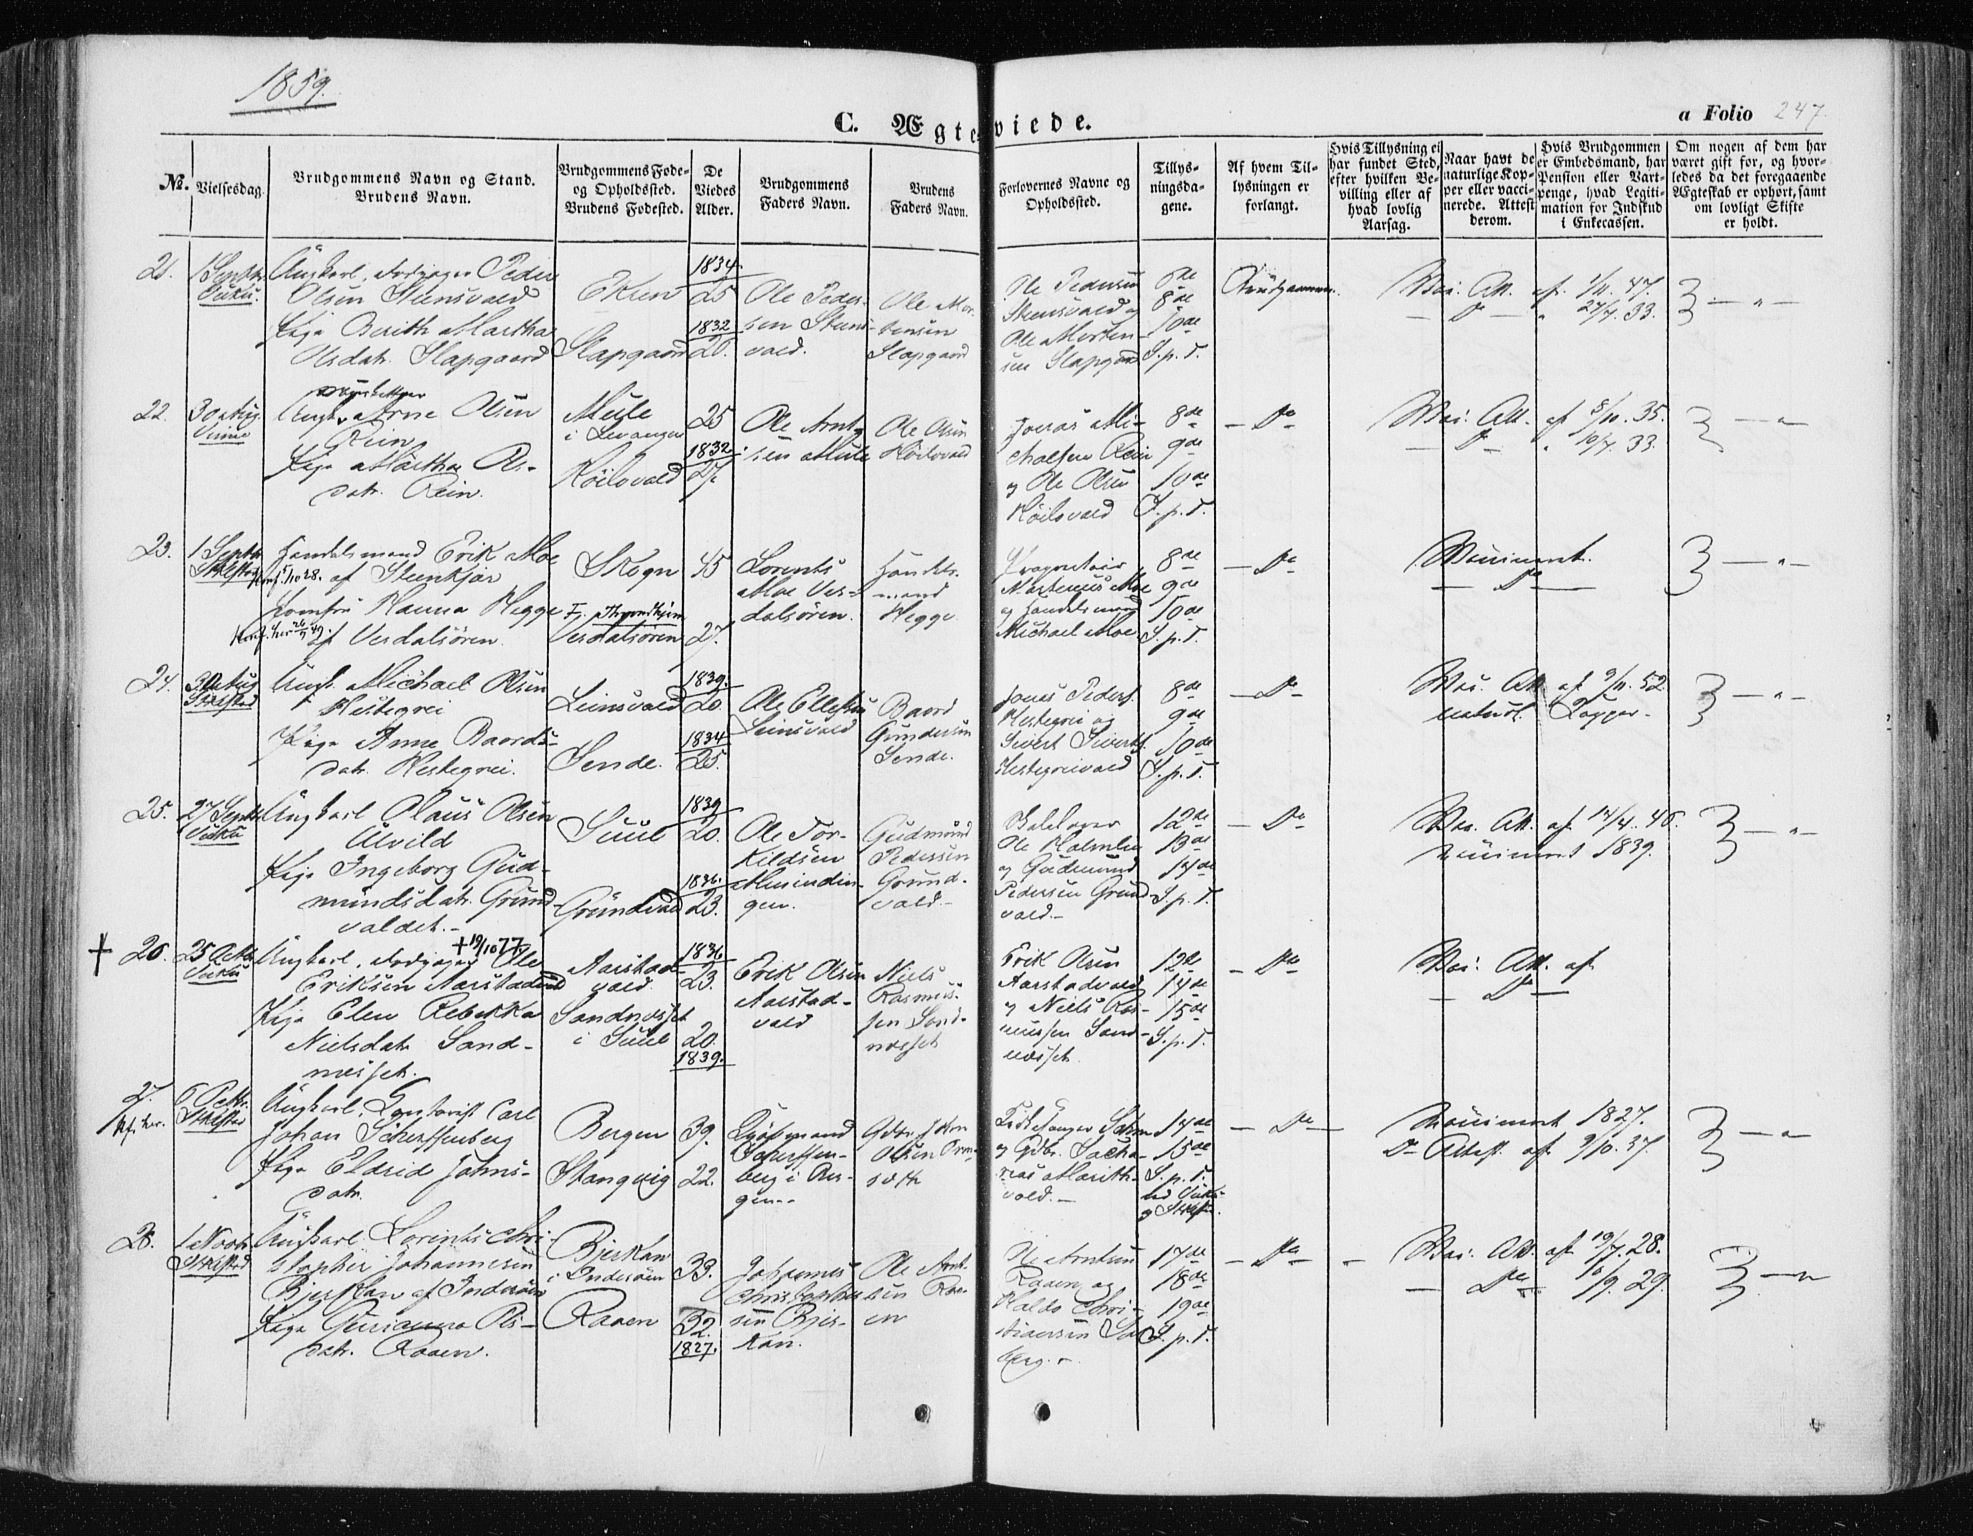 1859.
C. Ægteviede.
a Folio 247.
No.
Vielsesdag.
Brudgommens Navn og Stand.
Brudens Navn.
Brudgommens Føde-
og Opholdssted.
Brudens Fødested.
De
Viedes
Alder.
Brudgommens
Faders Navn.
Brudens
Faders Navn.
Forlovernes Navne og
Opholdssted.
Tillys-
ningsda-
gene.
Af hvem Til-
lysningen er
forlangt.
Hvis Tillysning ei
har fundet Sted,
efter hvilken Be-
villing eller af
hvad lovlig
Aarsag.
Naar havt de
naturlige Kop-
per eller vacci-
nerede. Attest
derom.
Hvis Brudgommen
er Embedsmand, har
Pension eller Vart-
penge, hvad Legiti-
mation for Indskud
i Enkecassen.
Om nogen af dem har
været gift før, og hvor-
ledes da det foregaaende
Ægteskab er ophørt, samt
om lovligt Skifte
er holdt.
21.
1 Septb.
Vuku.
Ungkarl, Peder
Olsen Steensvald
Pige Berith Martha
Olsdatr. Slapgaard
Eklen
Slapgaard
1834.
25
1832
26.
Ole Peder-
sen Steens-
vald.
Ole Mor-
tensen
Slapgaard
Ole Pedersen
Steensvald og
Ole Morten-
sen Slapgaard
6de
8de
10de
S. p. T.
Brudgommen.
Vac. Att. af 1/11. 47.
— Do — " 27/7. 33.
22.
30 Aug.
Vinne
Ungk. Arne Olsen
Rein
Pige Martha Ols-
datr. Rein.
Mule
i Levanger
Høilovald
25
1832.
27.
Ole Arnt-
sen Mule
Ole Olsen
Høilovald
Jonas Mi-
chelsen Rein
og Ole Olsen
Høilovald
8de
9de
10de
S. p. T.
— Do
Vac. Att. af 8/10. 35.
— Do — " 10/7. 33.
23.
1 Septb.
Stiklestad
Handelsmand Erik Moe
af Steenkjær
Jomfru Hanna Hegge
af Verdalsøren.
Skogn
F. Throndhjem
Verdalsøren
45
27.
Lorents
Moe Ver-
dalsøren.
Handels-
mand
Hegge
Martenius Moe
og Handelsmand
Michael Moe.
8de
9de
10de
S. p. T.
— Do
Vaccineret.
— Do —
24.
30 Aug.
Stiklestad
Ungk. Michael Olsen
Hestegrei
Pige Anne Baards-
datr. Hestegrei.
Leinsvald
Sende.
1839.
20.
1834
25.
Ole Ellefsen
Leinsvald
Baard
Gundersen
Sende.
Jonas Peders.
Hestegrei og
Sivert Siverts.
Hestegreivald
8de
9de
10de
S. p. T.
— Do
Vac. Att. af 9/11. 52
naturl. Kopper.
25.
27 Septb.
Vuku
Ungkarl Olaus Olsen
Ulvild
Pige Ingeborg Gud-
mundsdatr. Grund-
valdet.-
Suul
Grundvald
1839
20.
1836.
23.
Ole Tor-
kildsen
Gudmund
Pedersen
Grund-
vald.-
Ole Holmlie
og Gudmund
Pedersen Grund-
vald.-
12de
13de
14de
S. p. T.
— Do
Vac. Att. af 14/4. 46.
vaccineret 1839.
+ 26.
25 Octb.
Vuku
+ 19/10 77
Ungkarl, Ole
Eriksen Aarstadvald
Pige Elen Rebekka
Nielsdatr. Sand-
næsset.
Aarstad-
vald.
Sandnesset
i Suul
1836
23.
20.
1839.
Erik Olsen
Aarstad-
vald
Niels
Rasmus-
sen Sand-
næsset
Erik Olsen
Aarstadvald
og Niels Ras-
mussen Sand-
næsset.
12te
14de
15de
S. p. T.
— Do
Vac. Att. af
— Do —
27.
6 Octb.
Stiklestad
Ungkarl, Carl
Johan Scherffenberg
Pige Eldrid Johns-
datr.
Bergen
Stangvig
39.
22.
Kjøbmand
Scherffen-
berg i Ber-
gen.-
Gdbr. John
Olsen
Kirkesanger
og Gdbr. Zacha-
rias Marith-
vold.-
14de
15de
S. p. T.
ved Vuku
og Stiklest.
— Do —
vaccineret 1827.
Do Attest af 9/10. 37.
28.
1 Novb.
Stiklestad
Ungkarl Lorents Chri-
stopher Johannesen
Bjerkan af Inderøen
Pige Guruanna Ols-
datr. Raaen.
Bjerkan
i Inderøen
Raaen
33.
32.
1827.
Johannes
Christopher-
sen Bjer-
kan.
Ole Arnt-
sen Raa-
en
Ole Arntsen
Raaen og
Haldo Chri-
stiansen
berg.-
17de
18de
19de
S. p. T.
— Do —
Vac. Att. af 19/7. 28.
— Do — 16/9. 29.